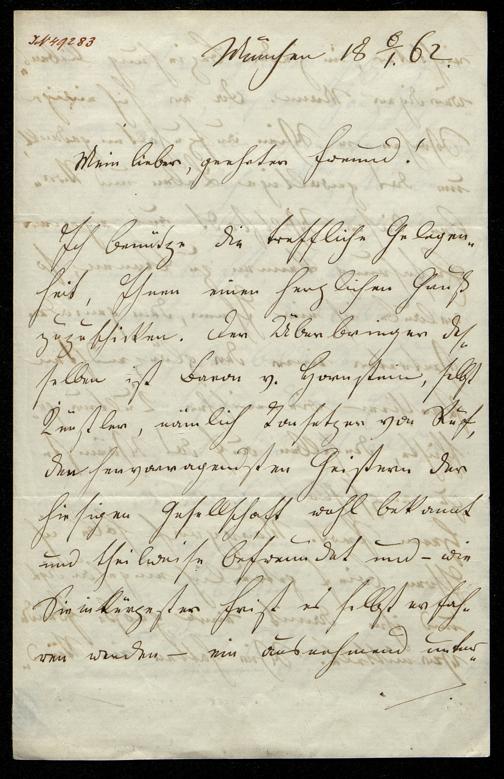 IN 49283
München 18 6/1. 62.
Mein lieber, geehrter Freund!
Ich benütze die treffliche Gelegen-
heit, Ihnen einen herzlichen Gruß
zuzuschicken. Der Überbringer des-
selben ist Baron v. Hornstein, selbst
Künstler, nämlich Tonsetzer von Ruf,
den hervorragendsten Geistern der
hiesigen Gesellschaft wohl bekannt
und theilweise befreundet und – wie
Sie in kürzester Frist es selbst erfah-
ren werden – ein ausnehmend unter-